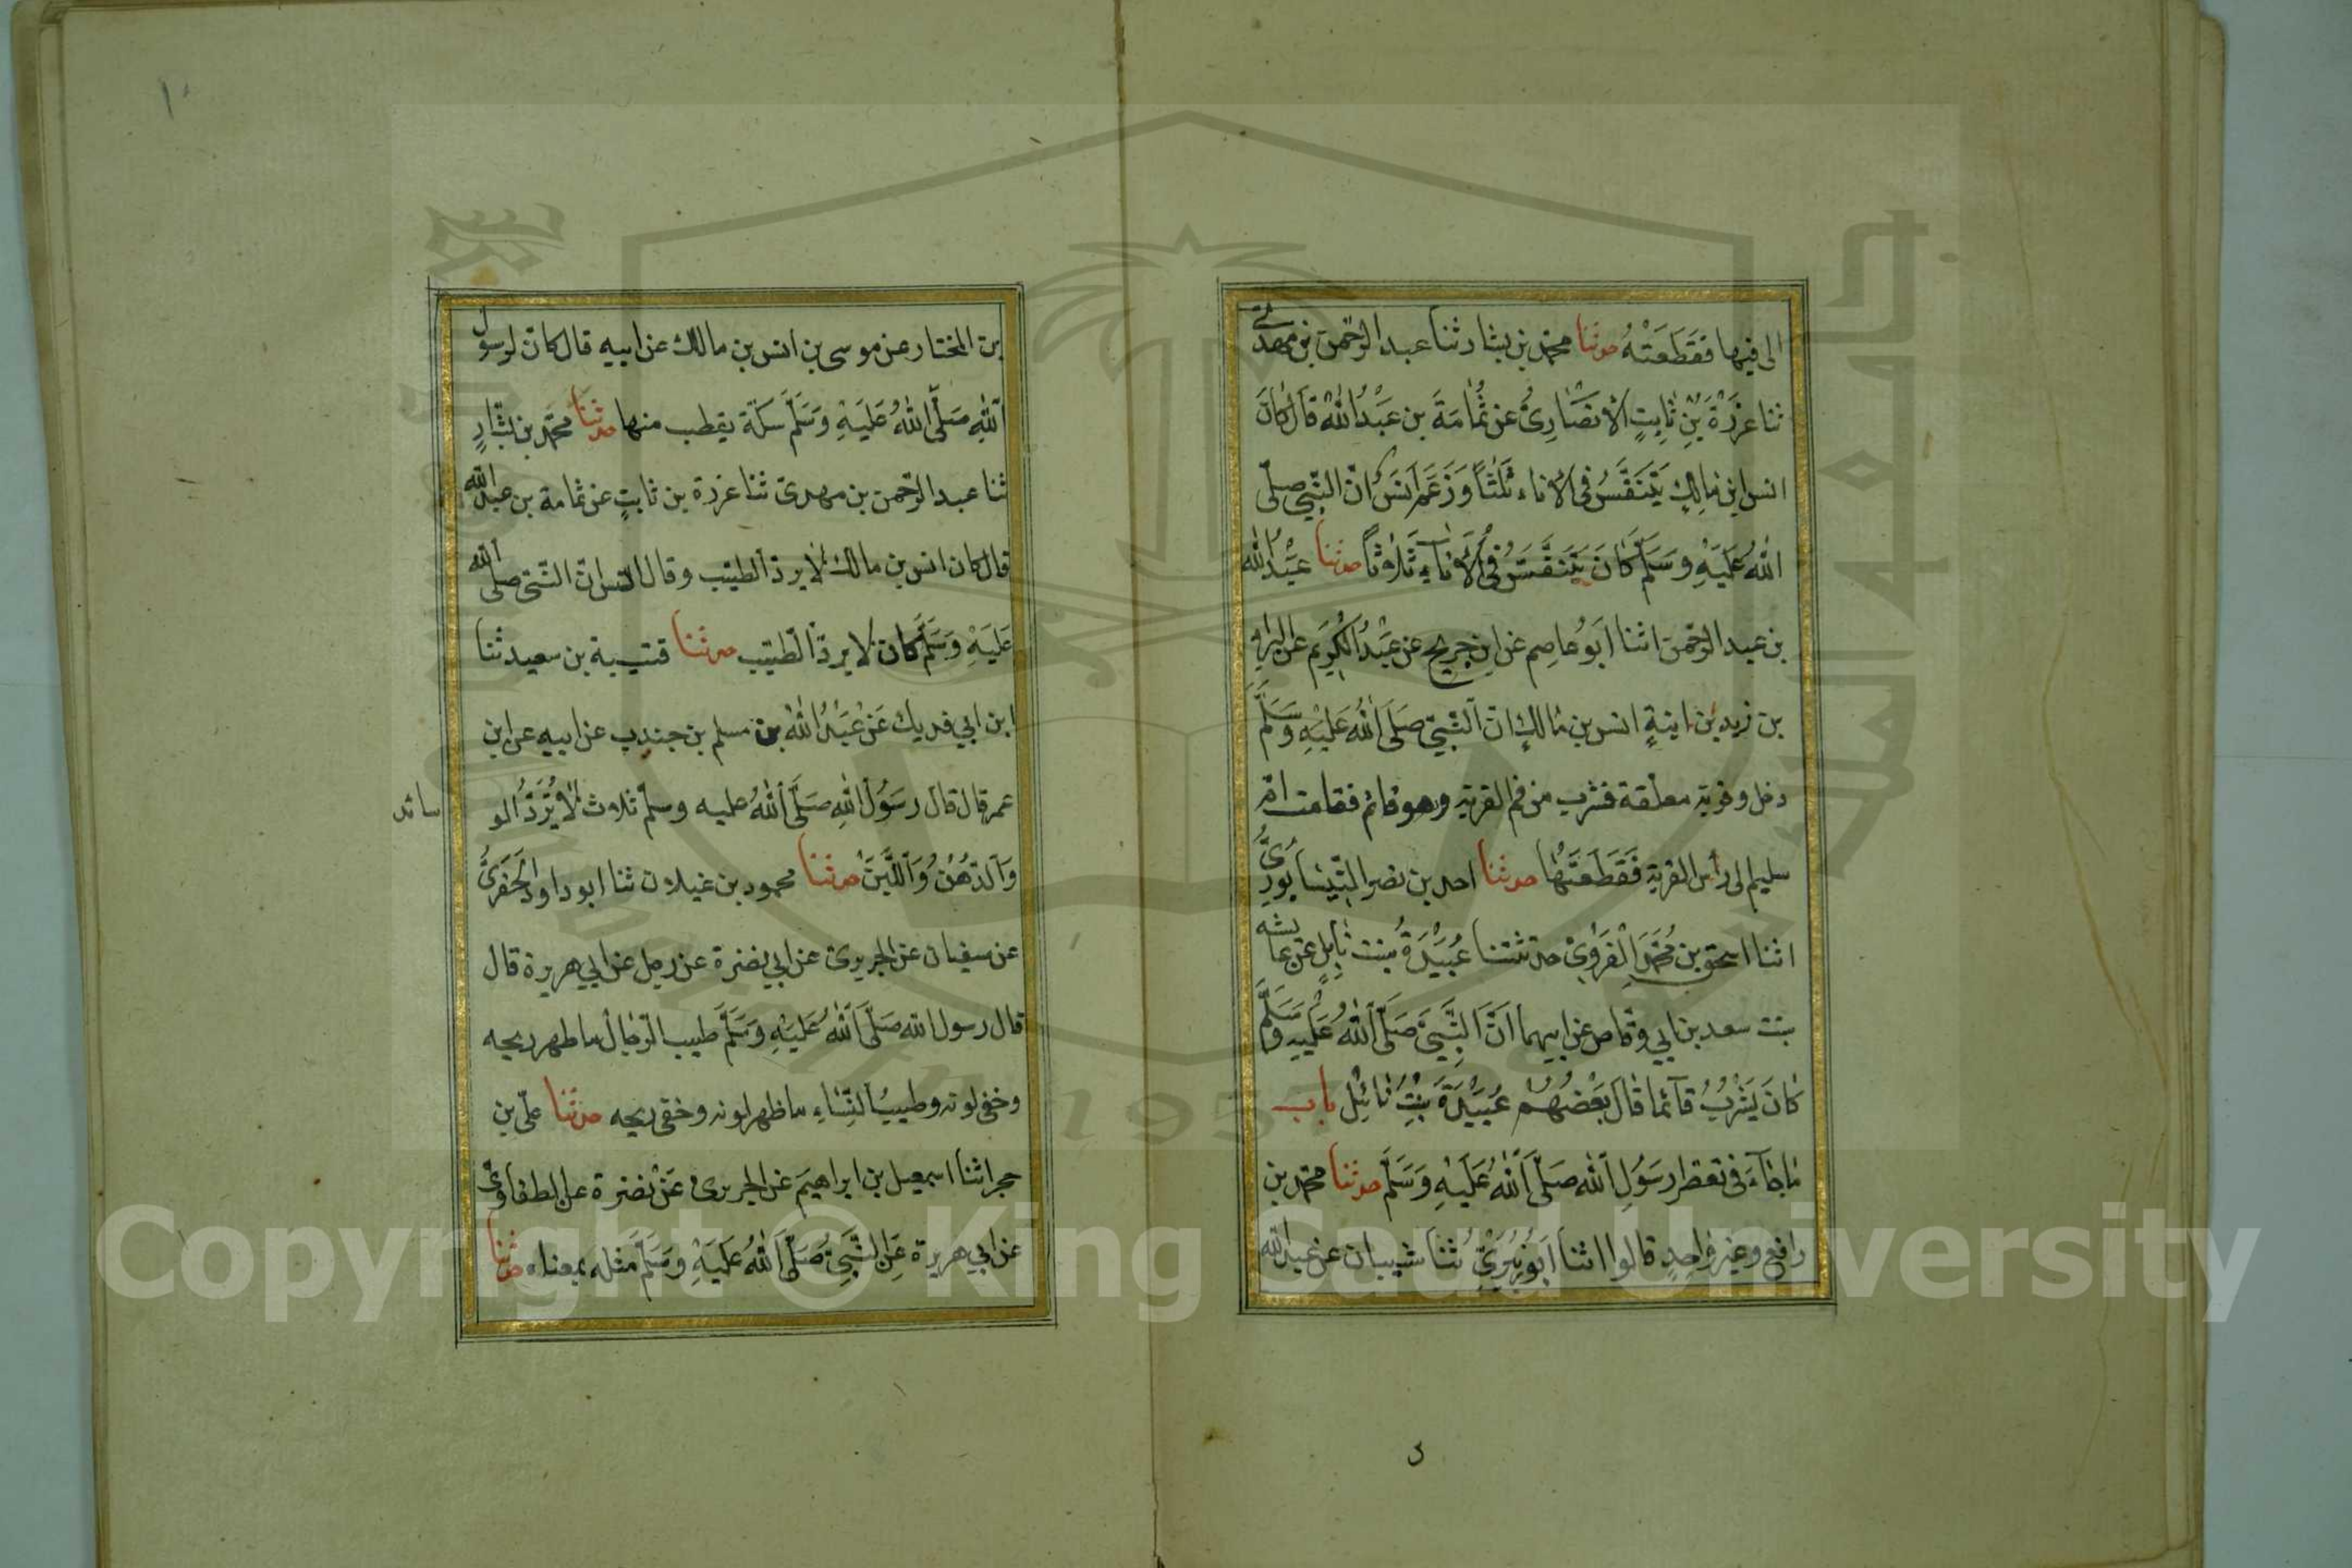 الى فيها فَقَطَعَتْهُ حدثنا محمد بن بشار ثنا عبد الرحمن بن مهدي
ثنا عزرَة بْنِ ثابِتٍ الأنصَارِىُّ عن ثُمامَةَ بن عَبْدُ اللهْ قَالَ كانَ
انس ابن مالِكٍ يَتَنَفَّسُ فى الاناء ثَلثاً وَزَعَمَ انَسَ انّ النّبي صلّى
اللهُ عَلَيْهِ وَسَلَّمَ كَانَ يَتَنَفَّسُ فِى الأَناءِ ثَلاثاً حدثنا عَبْدُ الله
بن عبد الرحمن اثنا اَبُو عاصِم عن ابن جريج عن عَبْدُ الْكَرِيَم عن البراءِ
بن زيد بن ابنةِ انس بن مالكٍ انّ النَّبيّ صَلَى اللهُ عَلَيْهِ وَسَلَّمَ
دخل وقربة معلقة فشرب من فم القربة وهو قائم فقامت امّ
سليم الى رأس القربة فَقَطَعَتْها حدثنا احمد بن نصر النّيسابُورِىُّ
اثنا اسحق بن مُحَمَدِ الْفَرَوِىْ حدثتنا عُبَيْدَةُ بنت نابِلٍ عَن عايشه
بنت سعد بن ابي وقاص عن ابيهما اَنَّ النَّبِيَّ صَلَّى اللهُ عَلَيْهِ وَسَلَّمَ
كانَ يَشْرَبُ قآئما قالَ بَعْضُهُمْ عُبَيْدَةَ بِنْتُ نائِلْ باب
ماجآءَ فى تعطر رسَوُلِ اللّه صَلَّى اللهُ عَلَيْهِ وَسَلَّمَ حدثنا محمّد بن
رافع وغير واحِدٍ قالوا اثنا اَبُو زُبَيْرِىّ ثنا شيبان عن عبد الله
بن المختار عن موسى بن انس بن مالك عن ابيه قال كان لرسول
اللهِ صَلَّى اللهُ عَلَيْهِ وَسَلَّمَ سكّة يقطب منها حدثنا محمّد بن بشّارٍ
ثنا عبد الرحمن بن مهدىّ ثنا عزرة بن ثابتٍ عن ثمامة بن عبد الله
قال كان انس بن مالك لا يردّ الطيّب وقال انس انّ النّبى صلى الله
عَلَيْهِ وَسَلَّمَ كان لا يردّ الطّيّب حدثنا قتيبة بن سعيد ثنا
ابن ابي فديك عَنْ عَبْدُ اللهْ بن مسلم بن جندب عن ابيه عن ابن
عمر قال قال رسَوُل اللهِ صَلَّى اللهُ عليه وسلّم ثلاث لا تُرَدُّ الو
سائد
وَالدّهْنُ وَاللَّبَنَ حدثنا محمود بن غيلان ثنا ابو داود الحَفَرِىُّ
عن سفيان عن الجريرىّ عن ابي نضرة عن رجل عن ابي هريرة قال
قال رسول الله صَلَّى اللهُ عَلَيْهِ وَسَلَّمَ طيب الرّجال ما ظهر ريحه
وخفى لونه وطيبُ النِّساءِ ما ظهر لونه وخفى ريحه حدثنا علىّ بن
حجر اثنا اسمعيل بن ابراهيم عن الجريرى عَنْ نضرة عن الطفاوىّ
عن ابي هريرة عَنِ النَّبِىّ صَلَّى اللهُ عَلَيْهِ وَسَلَّمَ مثله بمعناه حدثنا
١٠
Copyright © King Saud University
1957